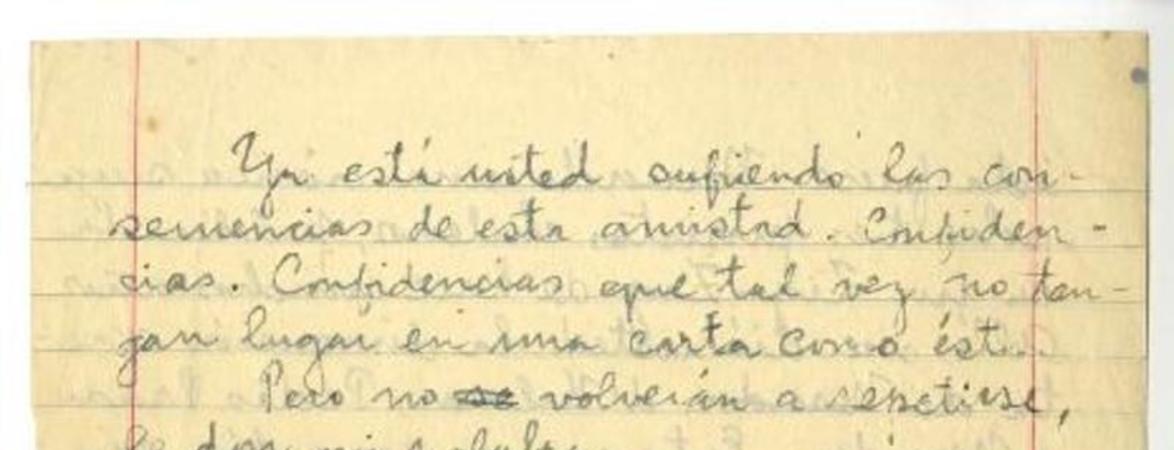 Ya está usted sufriendo las con-
secuencias de esta amistad. Confiden-
cias. Confidencias que tal vez no ten-
gan lugar en una carta como ésta.
Pero no se volverán a repetirse,
le doy mi palabra